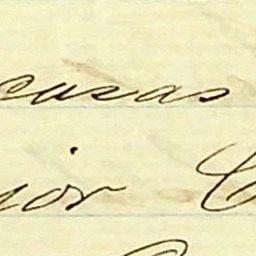 casas
ior C